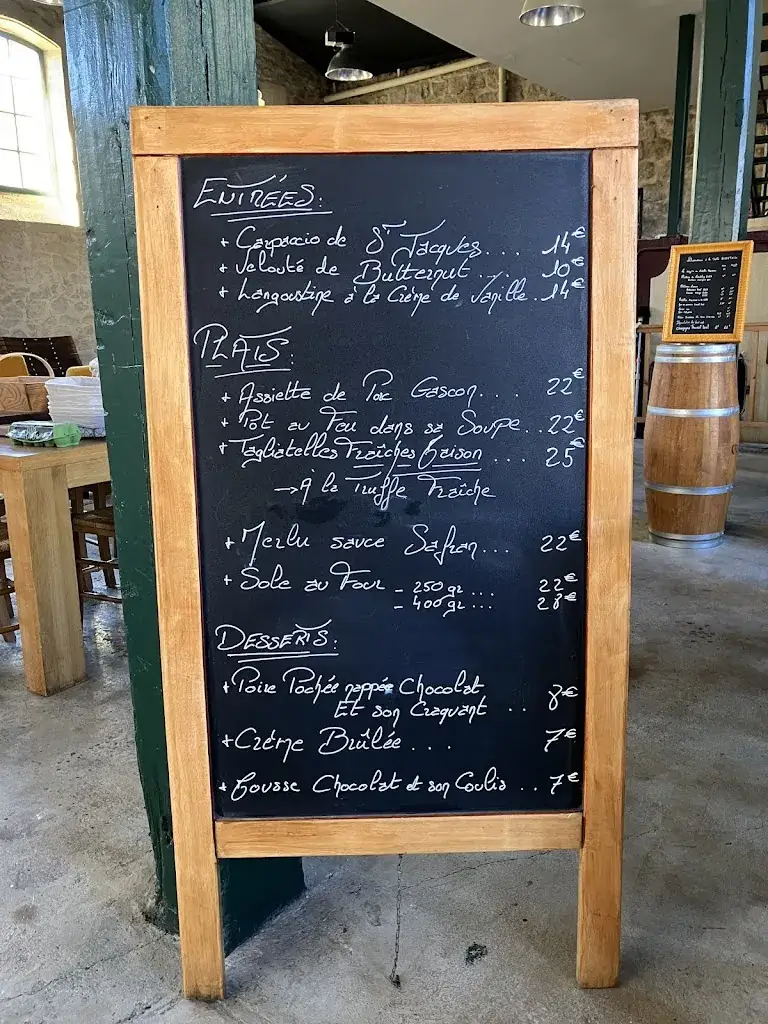 ENTRÉES:
+ Carpaccio de St Jacques... 14€
+ Velouté de Butternut... 10€
+ Langoustine à la Crème de Vanille.. 14€
PLATS:
+ Assiette de Porc Gascon... 22€
+ Pot au Feu dans sa Soupe.. 22€
+ Tagliatelles Fraîches Maison 25€
→ à la Truffe Fraîche
+ Merlu sauce Safran... 22€
+ Sole au Four - 250 gr ... 22€
- 400 gr ... 28€
DESSERTS:
+ Poire Pochée nappée Chocolat
Et son Craquant .. 8€
+ Crème Brûlée ... 7€
+ Mousse Chocolat et son Coulis .. 7€